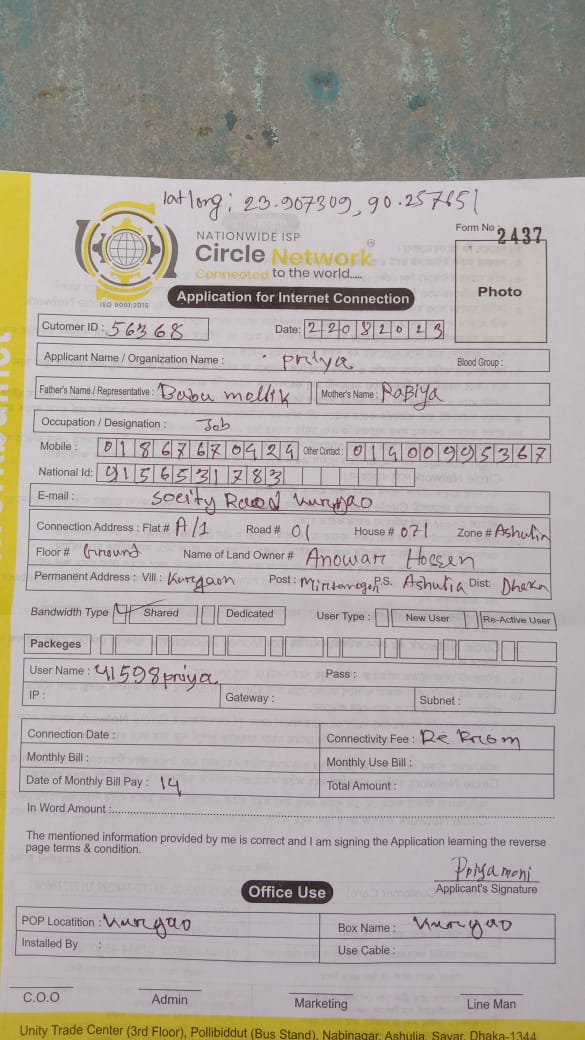 latlong: 23.907309, 90.257651
NATIONWIDE ISP
Circle Network®
Connected to the world.....
ISO 9001:2015
Form No 2437
Application for Internet Connection
Photo
Cutomer ID : 56368 Date: 22082023
Applicant Name / Organization Name : priya Blood Group :
Father's Name / Representative : Babu mollik Mother's Name : Rabiya
Occupation / Designation : Job
Mobile : 01867670424 Other Contact : 01400995367
National Id: 9156531783
E-mail : socity Raod kurgao
Connection Address : Flat # A/1 Road # 01 House # 071 Zone # Ashulia
Floor # Ground Name of Land Owner # Anowar Hossen
Permanent Address : Vill : Kurgaon Post : P.S. Ashulia Dist: Dhaka
Bandwidth Type Shared Dedicated User Type : New User Re-Active User
Packeges
User Name : 41598priya Pass :
IP : Gateway : Subnet :
Connection Date : Connectivity Fee :
Monthly Bill : Monthly Use Bill :
Date of Monthly Bill Pay : 14 Total Amount :
In Word Amount :
The mentioned information provided by me is correct and I am signing the Application learning the reverse
page terms & condition.
Priya moni
Applicant's Signature
Office Use
POP Locatition : kurgao Box Name : kurgao
Installed By : Use Cable :
C.O.O Admin Marketing Line Man
Unity Trade Center (3rd Floor), Pollibiddut (Bus Stand), Nabinagar, Ashulia, Savar, Dhaka-1344